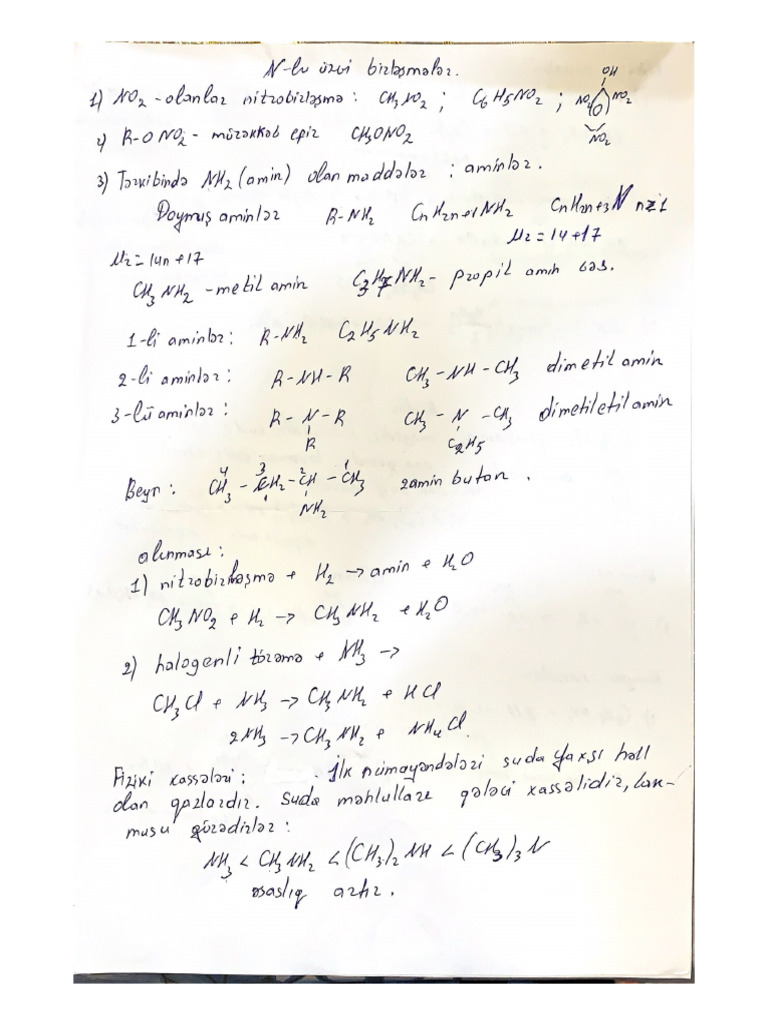 N-lu üzvi birləşmələr.
1) NO2-olanlar nitrobirləşmə: CH3NO2; C6H5NO2; OH NO2 NO2 NO2
2) R-ONO2- mürəkkəb epir CH3ONO2
3) Tərkibində NH2 (amin) olan maddələr: aminlər.
Doymuş aminlər R-NH2 CnH2n+1NH2 CnH2n+3N n≥1
Mr=14+17
Mr=14n+17
CH3NH2-metil amin C3H7NH2- propil amin
1-li aminlər: R-NH2 C2H5NH2
2-li aminlər: R-NH-R CH3-NH-CH3 dimetil amin
3-lü aminlər: R-N-R CH3-N-CH3 dimetiletilamin
R C2H5
4 3 2 1
Beyn: CH3-CH2-CH-CH3 2amin butan.
NH2
alınması:
1) nitrobirləşmə + H2 → amin + H2O
CH3NO2 + H2 → CH3NH2 + H2O
2) halogenli törəmə + NH3 →
CH3Cl + NH3 → CH3NH2 + HCl
2NH3 → CH3NH2 + NH4Cl
Fiziki xassələri: İlk nümayəndələri suda yaxşı həll
olan qazlardır. Suda məhlulları qələvi xassəlidir, lak-
musu göyərdirlər:
NH3 < CH3NH2 < (CH3)2NH < (CH3)3N
əsaslıq artır.